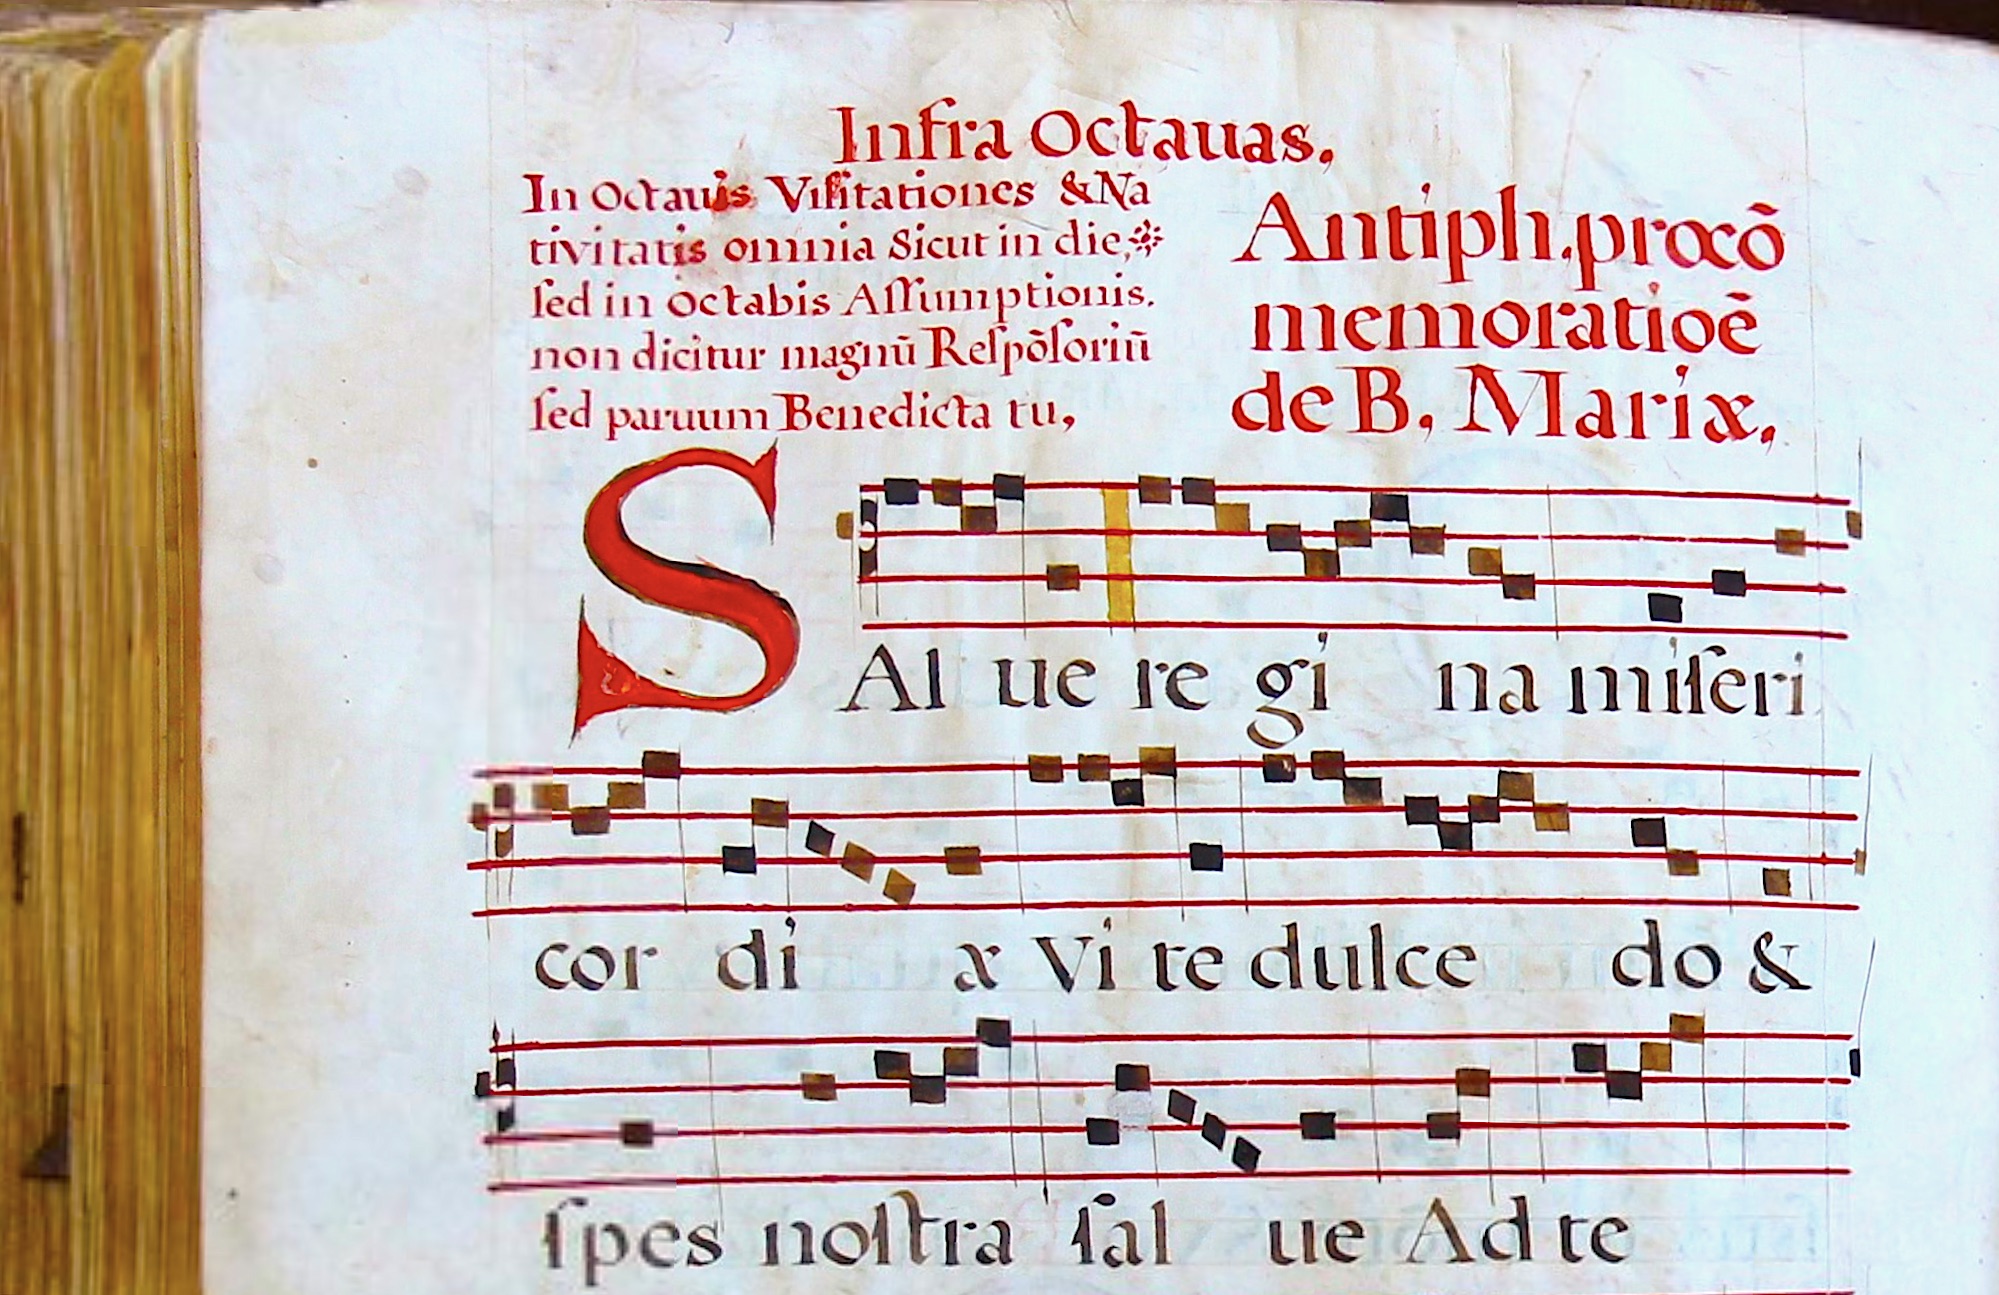 Infra Octauas,
In Octauis Viſitationes & Na
tivitatis omnia Sicut in die,
ſed in octabis Aſſumptionis.
non dicitur magnũ Reſpõſoriũ
ſed paruum Benedicta tu,
Antiph. pro cõ
memoratioẽ
de B, Mariæ,
SAl ue re gi na miſeri
cor di æ Vi te dulce do &
ſpes noſtra ſal ue Ad te